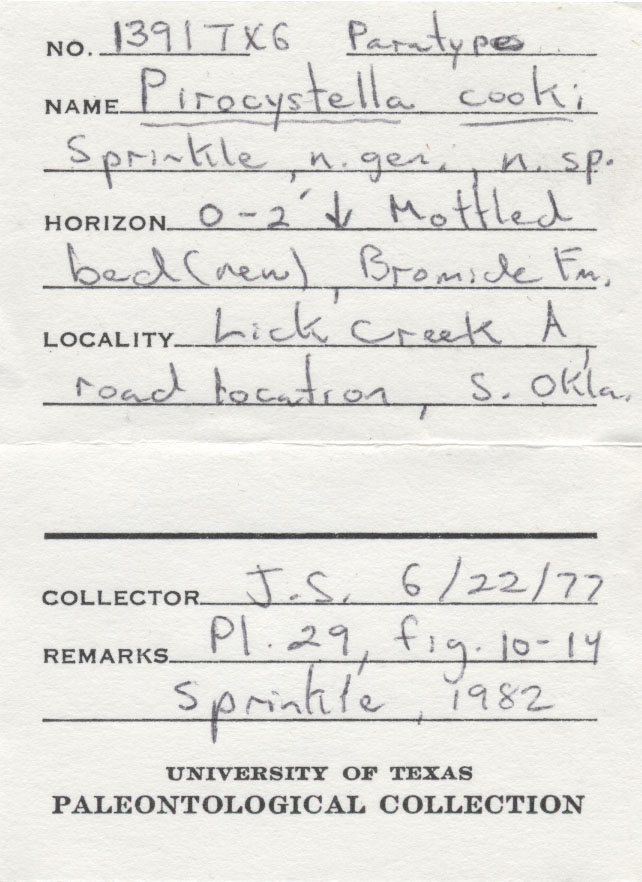 NO. 1391TX6 Paratype
NAME Pirocystella cooki
Sprinkle, n. gen., n. sp.
HORIZON 0-2' ↓ Mottled
bed (new), Bromide Fm.
LOCALITY Lick Creek A,
road location, S. Okla.
COLLECTOR J.S. 6/22/77
REMARKS Pl. 29, fig. 10-14
Sprinkle, 1982
UNIVERSITY OF TEXAS
PALEONTOLOGICAL COLLECTION